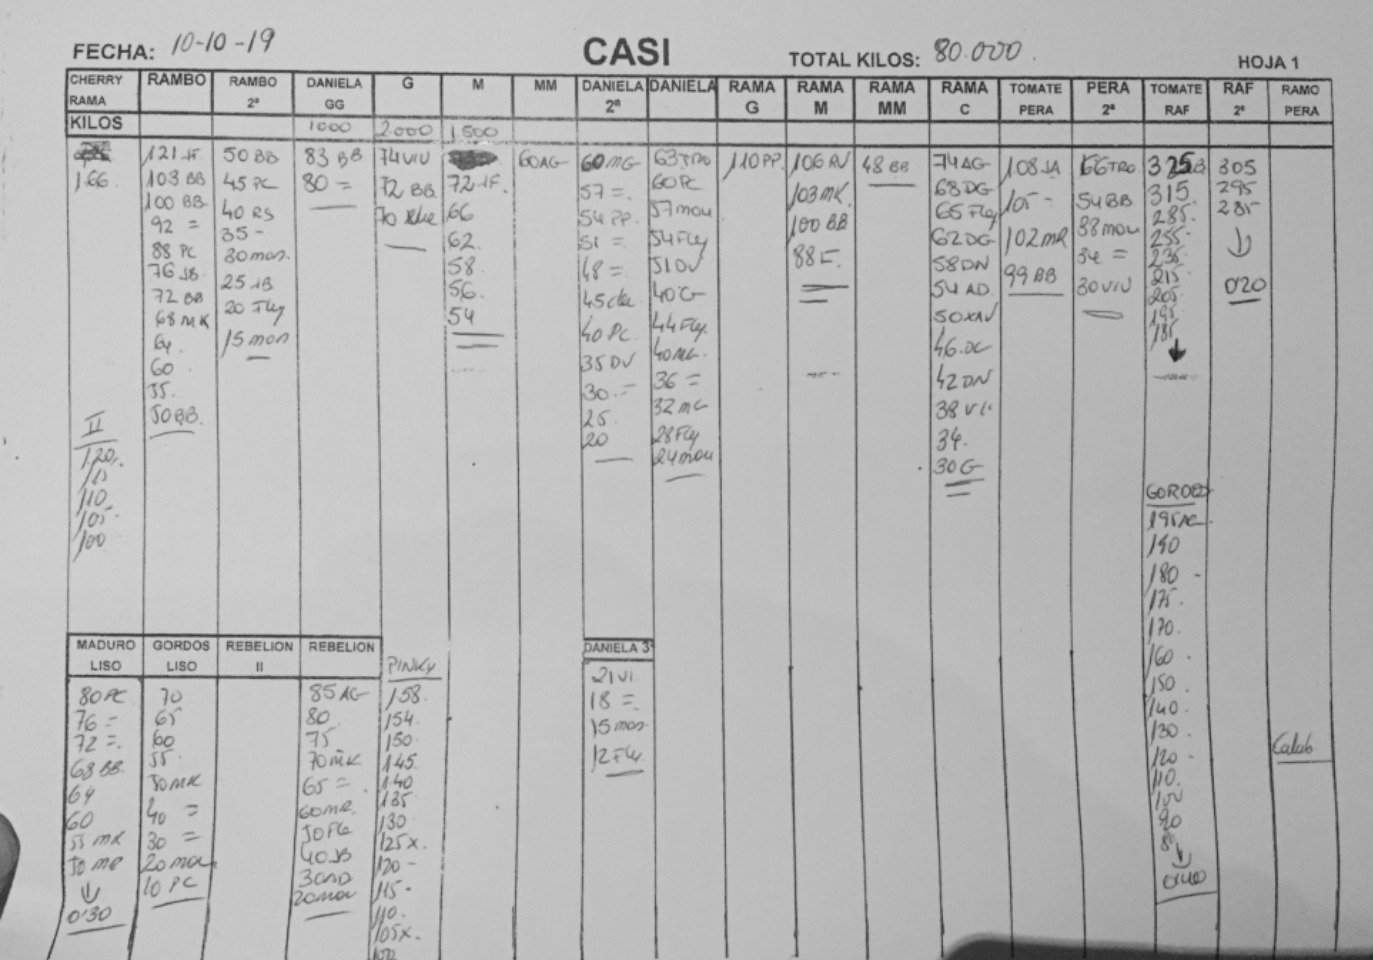 FECHA: 10-10-19 CASI TOTAL KILOS: 80.000 HOJA 1
CHERRY RAMBO RAMBO DANIELA G M MM DANIELA DANIELA RAMA RAMA RAMA RAMA TOMATE PERA TOMATE RAF RAMO
RAMA 2ª GG 2ª G M MM C PERA 2ª RAF 2ª PERA
KILOS 1000 2.000 1.500
166.
II
120.
115
110
105-
100
121 JF.
103 BB
100 BB
92 =
88 PC
76 JB
72 BB
68 MK
64.
60
55.
50 BB.
50 BB
45 PC
40 RS
35-
30 mon.
25 JB
20 Fly
15 mon
83 BB
80 =
74 VIU
72 BB
70
72 JF.
66
62.
58
56.
54
60 AG
60 MG
57 =.
54 PP.
51 =.
48 =
45
40 PC.
35 DV
30.=
25.
20
63 TRO
60 PC
57 mou
54 Fly
51 DV
40 G
44 Fly.
40 MG.
36 =
32 MG
28 Fly
24 mou
110 PP.
106 AV
103 MK.
100 BB
88 F.
48 BB
74 AG
68 DG
65 Fly
62 DG
58 DN
54 AD.
50 XAV
46. DG
42 DN
38 VI.
34.
30 G
108 JA
105 -
102 MR
99 BB
66 TRO.
54 BB
38 mou
34 =
30 VIU
325 B
315
285.
255.
235
215
205
195
185
↓
GORDOS
195 AG.
190
180 -
175.
170.
160 -
150.
140.
130 -
120 -
110.
100
90
80
↓
0'40
305
295
285
↓
0'20
Calab.
MADURO GORDOS REBELION REBELION
LISO LISO II
80 PC
76 =
72 =.
68 BB.
64
60
55 MK
50 MR
↓
0'30
70
65
60
55.
50 MK
40 =
30 =
20 mou
10 PC
85 AG
80
75
70 MK
65 =
60 MR.
50 FG
40 JB
30 AD
20 mou
PINKY
158.
154.
150.
145.
140
135
130
125x.
120 -
115 -
110.
105x.
100
DANIELA 3ª
21 VI.
18 =.
15 mon
12 Fly